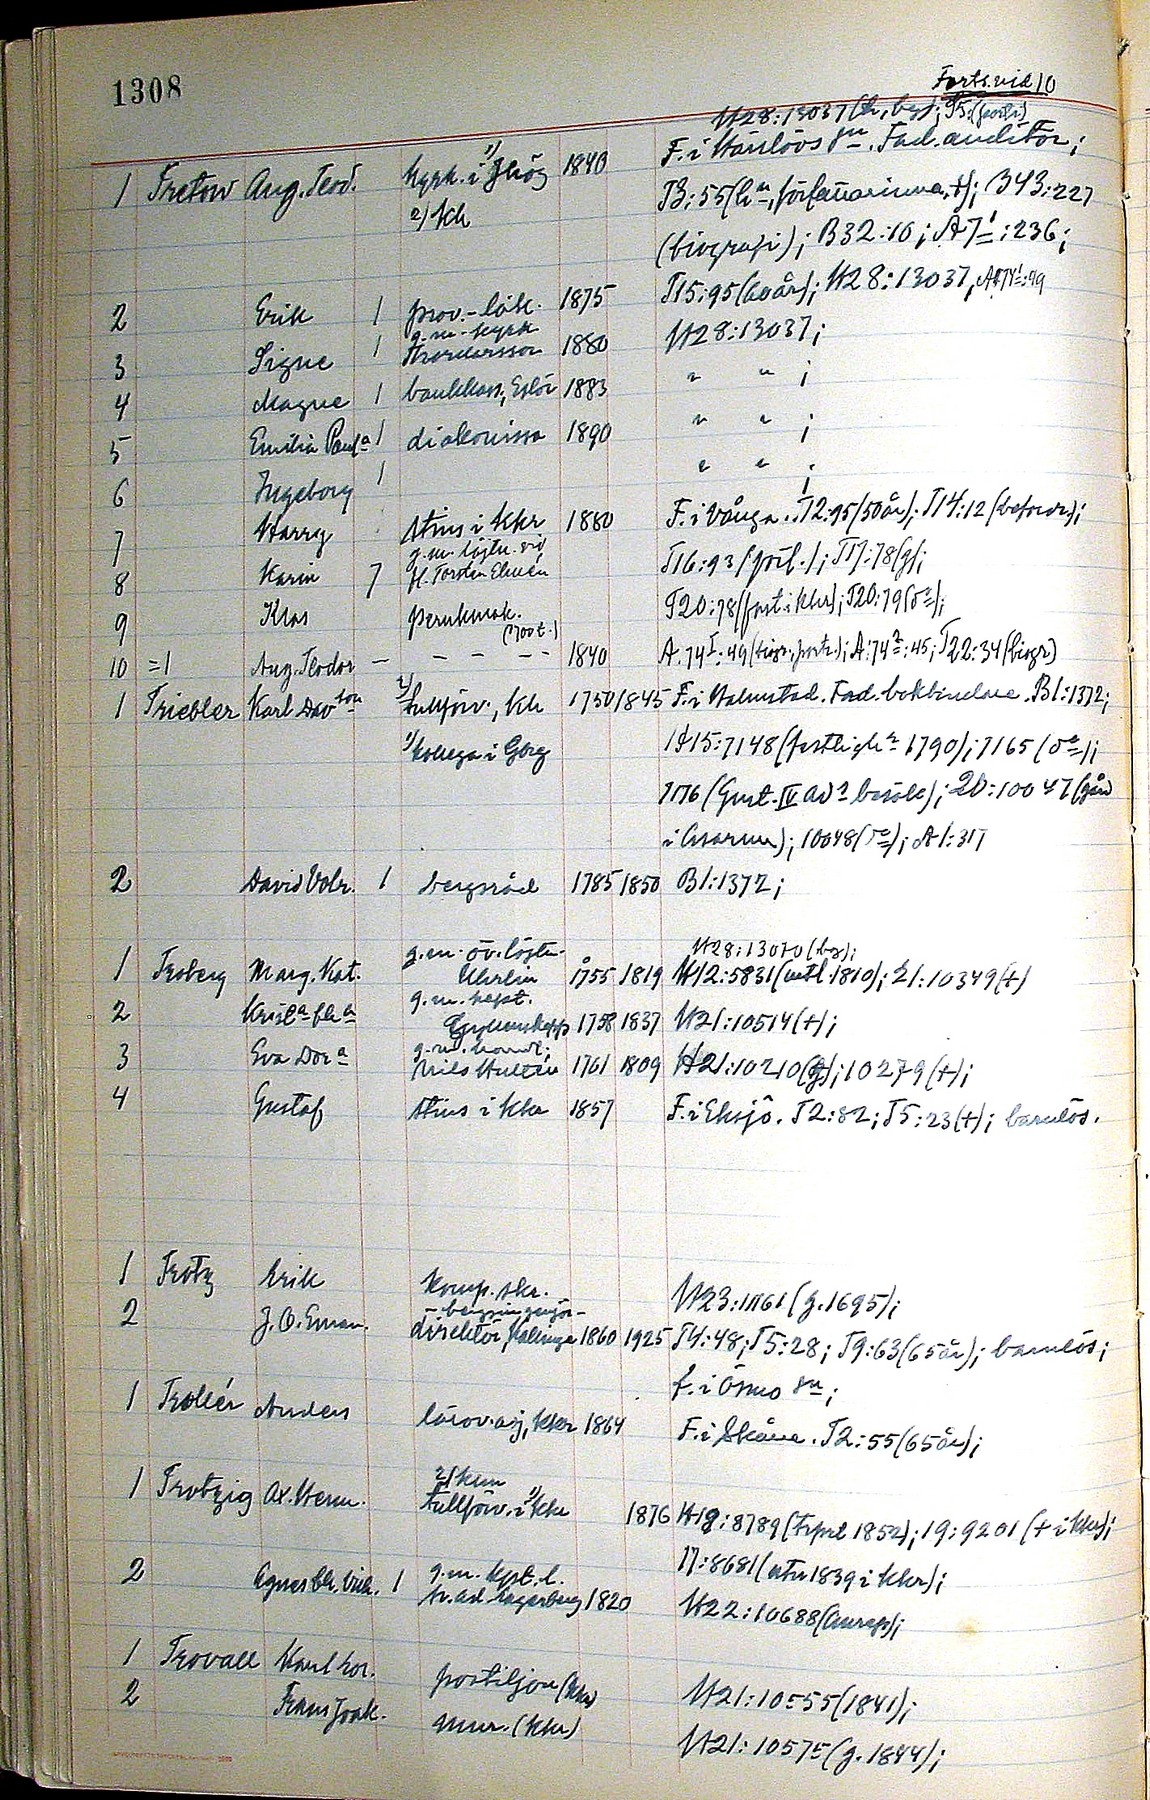 1308
Forts. vid 10
H28:13037 (h, bg); T5: (portr)
1 Tretow Aug. Teod. kyrk. i 1840 F. i Hänlövs sn. Fad. auditör;
2) Kh T3:55 (hn, författarinna, +); B43:227
(biografi); B32:16; A71:236;
T15:95 (60 år); H28:13037, A741:49
2 Erik 1 prov.-läk. 1875
3 Signe 1 g.m. kyrkh Thordarsson 1880 H28:13037;
4 Magne 1 bankkass., Eslöv 1883 " " ;
5 Emilia Paula 1 diakonissa 1890 " " ;
6 Ingeborg 1 " " ;
7 Harry i Kkr 1880 F. i Vånga. T2:95 (50 år); T14:12 (befordr.);
8 Karin 7 g.m. löjtn. vid fl. Torsten T16:93 (förl.); T17:78 (g);
9 Klas Perukmak. (1700 t.) T20:78 (fest i Kkr); T20:79 (do);
10 =1 Aug. Teodor — — — — — 1840 A.741:49 (biogr. portr.); A742:45; T22:34 (biogr)
1 Triebler Karl Davson 2) Tullförv., Kh 1750 1845 F. i Halmstad. Fad. bokbindare. B1:1372;
1) kollega i Gbrg H15:7148 (festligh. 1790); 7165 (do);
7176 (Gust. IV Ads besök); 20:10047 (gård
i Asarum); 10048 (do); A1:317
2 David Volr. 1 bergsråd 1785 1850 B1:1372;
H28:13070 (bg);
1 Troberg Marg. Kat. g.m. öv. löjtn. Uhrlin 1755 1819 H12:5831 (1810); 21:10349 (+)
2 Krisa g.m. kapt. Gyllenskepp 1758 1837 H21:10514 (+);
3 Eva Dora g.m. handl; Nils Hultén 1761 1809 H21:10210 (g); 10279 (+);
4 Gustaf i Kkr 1857 F. i Eksjö. T2:82; T5:23 (+); barnlös.
1 Trotz Erik komp. skr. H23:11161 (g. 1695);
2 J. O. Eman. bergsingenjör- direktör, Kallinge 1860 1925 T4:48; T5:28; T9:63 (65 år); barnlös;
f. i Ösmo sn;
1 Trollér Anders lärov. adj, Kkr 1864 F. i Skåne. T2:55 (65 år);
1 Trotzig Ax. Herm. 2) Khn Tullförv. i 1) Kkr 1876 H18:8789 (1852); 19:9201 (+ i Kkr);
17:8681 (1839 i Kkr);
2 Agnes Vilh. 1 g.m. kpt. l. Kr. Ad. Lagerberg 1820 H22:10688;
1 Trovall Karl Lor. postiljon (Kkr) H21:10555 (1841);
2 Frans Joak. mur. (Kkr) H21:10575 (g. 1844);